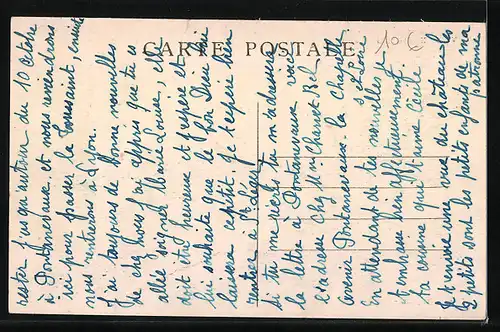 CARTE POSTALE
10 €
rester jusqu'autour du 10 Octobre
à Pontanevaux, et nous reviendrons
ici pour passer la Toussaint, ensuite
nous rentrerons à Lyon.
J'ai toujours de bonne nouvelles
de chez vous j'ai appris que tu es
allée soigner Marie Louise, elle
doit être heureuse et j'espère et
lui souhaite que le bon Dieu lui
laissera ce petit. Je t'espère bien
rentrée à
si tu me récris tu m'adressera
la lettre à Pontanevaux voici
l'adresse chez Mr Charvet Bel
levenir Pontanevaux. la Chapelle
s-Loire
En attendant de tes nouvelles je
t'embrasse bien affectueusement.
Ta cousine qui t'aime Cécile
Je t'envoie une vue du château les
2 petits sont les petits enfants de ma
patronne